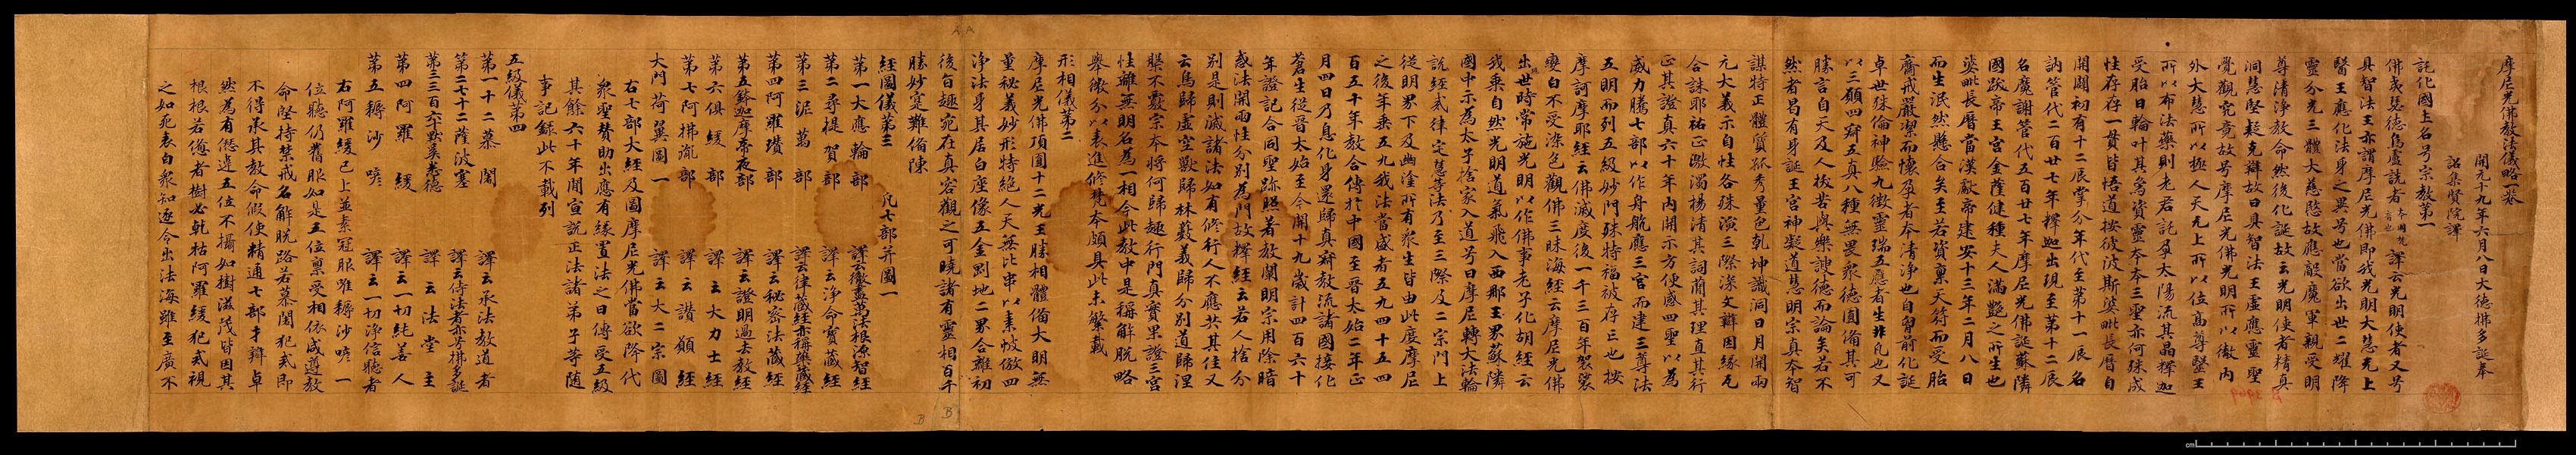 摩尼光佛教法儀略一卷
開元十九年六月八日大德拂多誕奉
詔集賢院譯
託化國主名号宗教第一
佛夷瑟德烏盧詵者本國梵音也譯云光明使者又号
具智法王亦謂摩尼光佛即我光明大慧无上
醫王應化法身之異号也當欲出世二耀降
靈分光三體大慈愍故應敵魔軍親受明
尊清淨教命然後化誕故云光明使者精真
洞慧堅疑克辯故曰具智法王虛應靈聖
覺觀究竟故号摩尼光佛光明所以徹內
外大慧所以極人天无上所以位高尊醫王
所以布法藥則老君託孕太陽流其晶釋迦
受胎日輪叶其象資靈本本三聖亦何殊成
性存存一貫皆悟道按彼波斯婆毗長曆自
開闢初有十二辰掌分年代至第十一辰名
訥管代二百廿七年釋迦出現至第十二辰
名魔謝管代五百廿七年摩尼光佛誕蘇隣
國跋帝王宮金薩健種夫人滿艷之所生也
婆毗長曆當漢獻帝建安十三年二月八日
而生泯然懸合矣至若資稟天符而受胎
齋戒嚴潔而懷孕者本清淨也自胷前化誕
卓世殊倫神驗九徵靈瑞五應者生非凡也又
以三願四寂五真八種無畏衆德圓備其可
勝言自天及人拔苦與樂謏德而論矣若不
然者曷有身誕王宮神凝道慧明宗真本智
謀特正體質孤秀量包乾坤識洞日月開兩
元大義示自性各殊演三際深文辯因緣瓦
合誅耶祐正激濁揚清其詞簡其理直其行
正其證真六十年內開示方便感四聖以為
威力騰七部以作舟航應三宮而建三尊法
五明而列五級妙門殊特福被存亡也按
摩訶摩耶經云佛滅度後一千三百年袈裟
變白不受染色觀佛三昧海經云摩尼光佛
出世時常施光明以作佛事老子化胡經云
我乘自然光明道氣飛入西那玉界蘇隣
國中示為太子捨家入道号曰摩尼轉大法輪
說經戒律定慧等法乃至三際及二宗門上
從明界下及幽塗所有衆生皆由此度摩尼
之後年垂五九我法當盛者五九四十五四
百五十年教合傳於中國至晉太始二年正
月四日乃息化身還歸真寂教流諸國接化
蒼生從晉太始至今開十九歲計四百六十
年證記合同聖跡照著教闡明宗用除暗
惑法開兩性分別為門故釋經云若人捨分
別是則滅諸法如有修行人不應共其住又
云鳥歸虛空獸歸林藪義歸分別道歸涅
槃不覈宗本將何歸趣行門真實果證三宮
性離無明名為一相今此教中是稱解脫略
舉微分以表進修梵本頗具此未繁載
形相儀第二
摩尼光佛頂圓十二光王勝相體備大明無
量秘義妙形特絕人天無比串以素帔倣四
淨法身其居白座像五金剛地二界合離初
後旨趣宛在真容觀之可曉諸有靈相百千
勝妙寔難備陳
經圖儀第三　凡七部并圖一
第一大應輪部　譯云徹盡萬法根源智經
第二尋提賀部　譯云淨命寶藏經
第三泥萬部　譯云律藏經亦稱藥藏經
第四阿羅瓚部　譯云秘密法藏經
第五鉢迦摩帝夜部　譯云證明過去教經
第六俱緩部　譯云大力士經
第七阿拂胤部　譯云讚願經
大門荷翼圖一　譯云大二宗圖
右七部大經及圖摩尼光佛當欲降代
衆聖贊助出應有緣置法之日傳受五級
其餘六十年間宣說正法諸弟子等隨
事記録此不載列
五級儀第四
第一十二慕闍　譯云承法教道者
第二七十二薩波塞　譯云侍法者亦号拂多誕
第三三百六十默奚悉德　譯云法堂主
第四阿羅緩　譯云一切純善人
第五耨沙喭　譯云一切淨信聽者
右阿羅緩已上並素冠服唯耨沙喭一
位聽仍舊服如是五位稟受相依咸遵教
命堅持禁戒名解脫路若慕闍犯戒即
不得承其教命假使精通七部才辯卓
然為有愆違五位不攝如樹滋茂皆因其
根根若憊者樹必乹枯阿羅緩犯戒視
之如死表白衆知逐令出法海雖至廣不